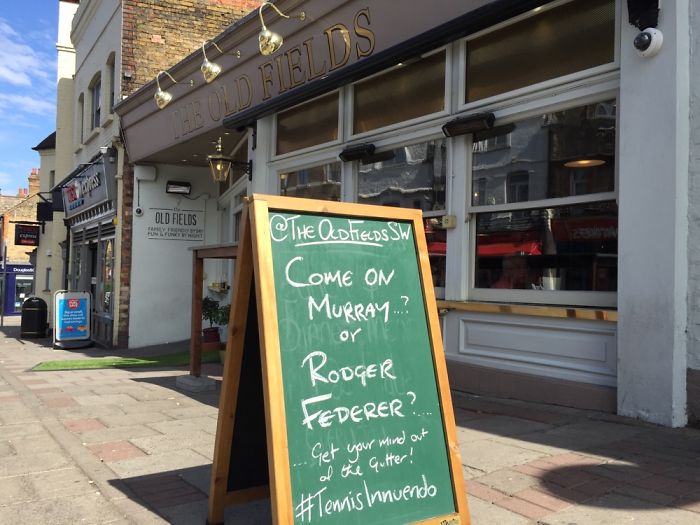 THE OLD FIELDS
OLD FIELDS
FAMILY FRIENDLY BY DAY
FUN & FUNKY BY NIGHT
@THE OLDFIELDS SW
COME ON
MURRAY...?
or
RODGER
FEDERER?...
...Get your mind out
of the Gutter!
#TennisInnuendo